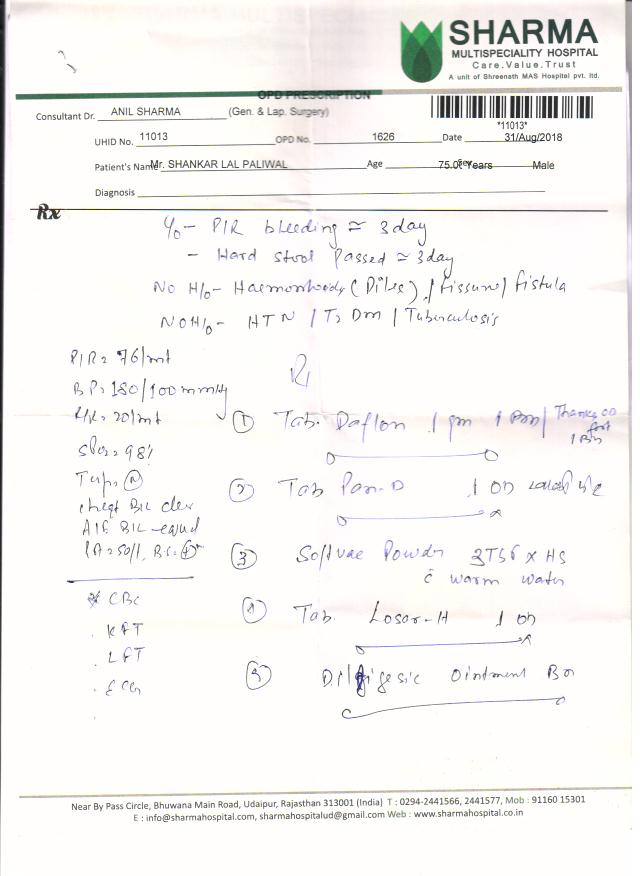 SHARMA
MULTISPECIALITY HOSPITAL
Care.Value.Trust
A unit of Shreenath MAS Hospital pvt. ltd.
OPD PRESCRIPTION
Consultant Dr. ANIL SHARMA (Gen. & Lap. Surgery)
*11013*
UHID No. 11013 OPD No. 1626 Date 31/Aug/2018
Patient's Name Mr. SHANKAR LAL PALIWAL Age 75.00 Years Sex Male
Diagnosis
Rx
- P/R bleeding ≃ 3 day
- Hard stool Passed ≃ 3 day
No H/o- Haemorrhoids (Piles) / fissure / fistula
No H/o- HTN / T2 Dm / Tuberculosis
P/R = 76/mt
BP = 180/100 mmHg
R/R = 20/mt
SPO2 = 98%
Temp = (N)
chest B/L clear
A/E B/L equal
① Tab. Daflon 1 gm
② Tab Pan-D 1 OD
③ Softvac Powder 3TSF x HS
c̄ warm water
④ Tab. Losar-H 1 OD
⑤ Ointment
CBC
. KFT
. LFT
. ECG
Near By Pass Circle, Bhuwana Main Road, Udaipur, Rajasthan 313001 (India) T : 0294-2441566, 2441577, Mob : 91160 15301
E : info@sharmahospital.com, sharmahospitalud@gmail.com Web : www.sharmahospital.co.in